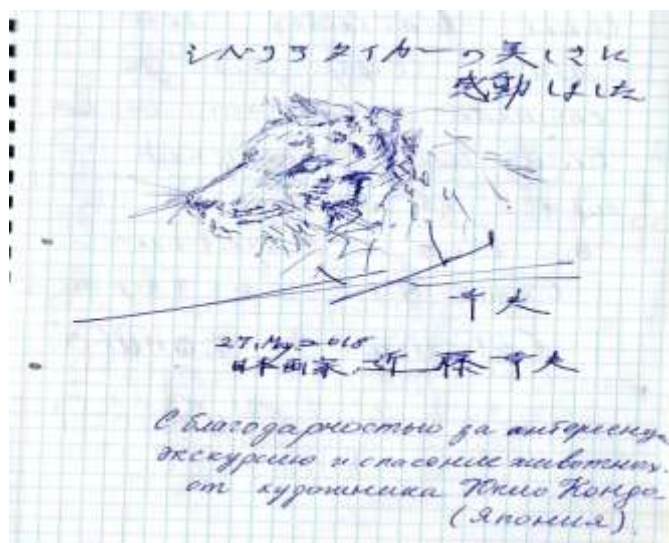 シベリアタイガーの美しさに
感動しました
幸夫
27, May, 2018
日本画家 近藤幸夫
С благодарностью за интересную
экскурсию и спасение животных
от художника Юкио Кондо
(Япония).